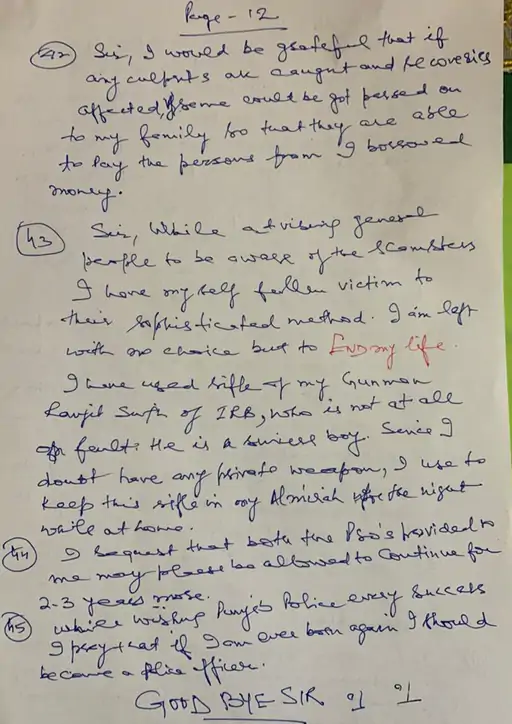 Page - 12
42 Sir, I would be grateful that if
any culprits are caught and recoveries
affected, some could be got passed on
to my family so that they are able
to pay the persons from I borrowed
money.
43 Sir, While advising general
people to be aware of the scamsters
I have myself fallen victim to
their sophisticated method. I am left
with no choice but to END my life.
I have used rifle of my Gunman
Ranjit Singh of IRB, who is not at all
fault. He is a boy. Since I
have any private weapon, I use to
keep this rifle in my Almirah for the night
while at home.
44 I Request that both the PSO's provided to
me may please be allowed to Continue for
2-3 years more.
45 while wishing Punjab Police every success
I pray that if I am ever born again I should
become a Police officer.
GOOD BYE SIR